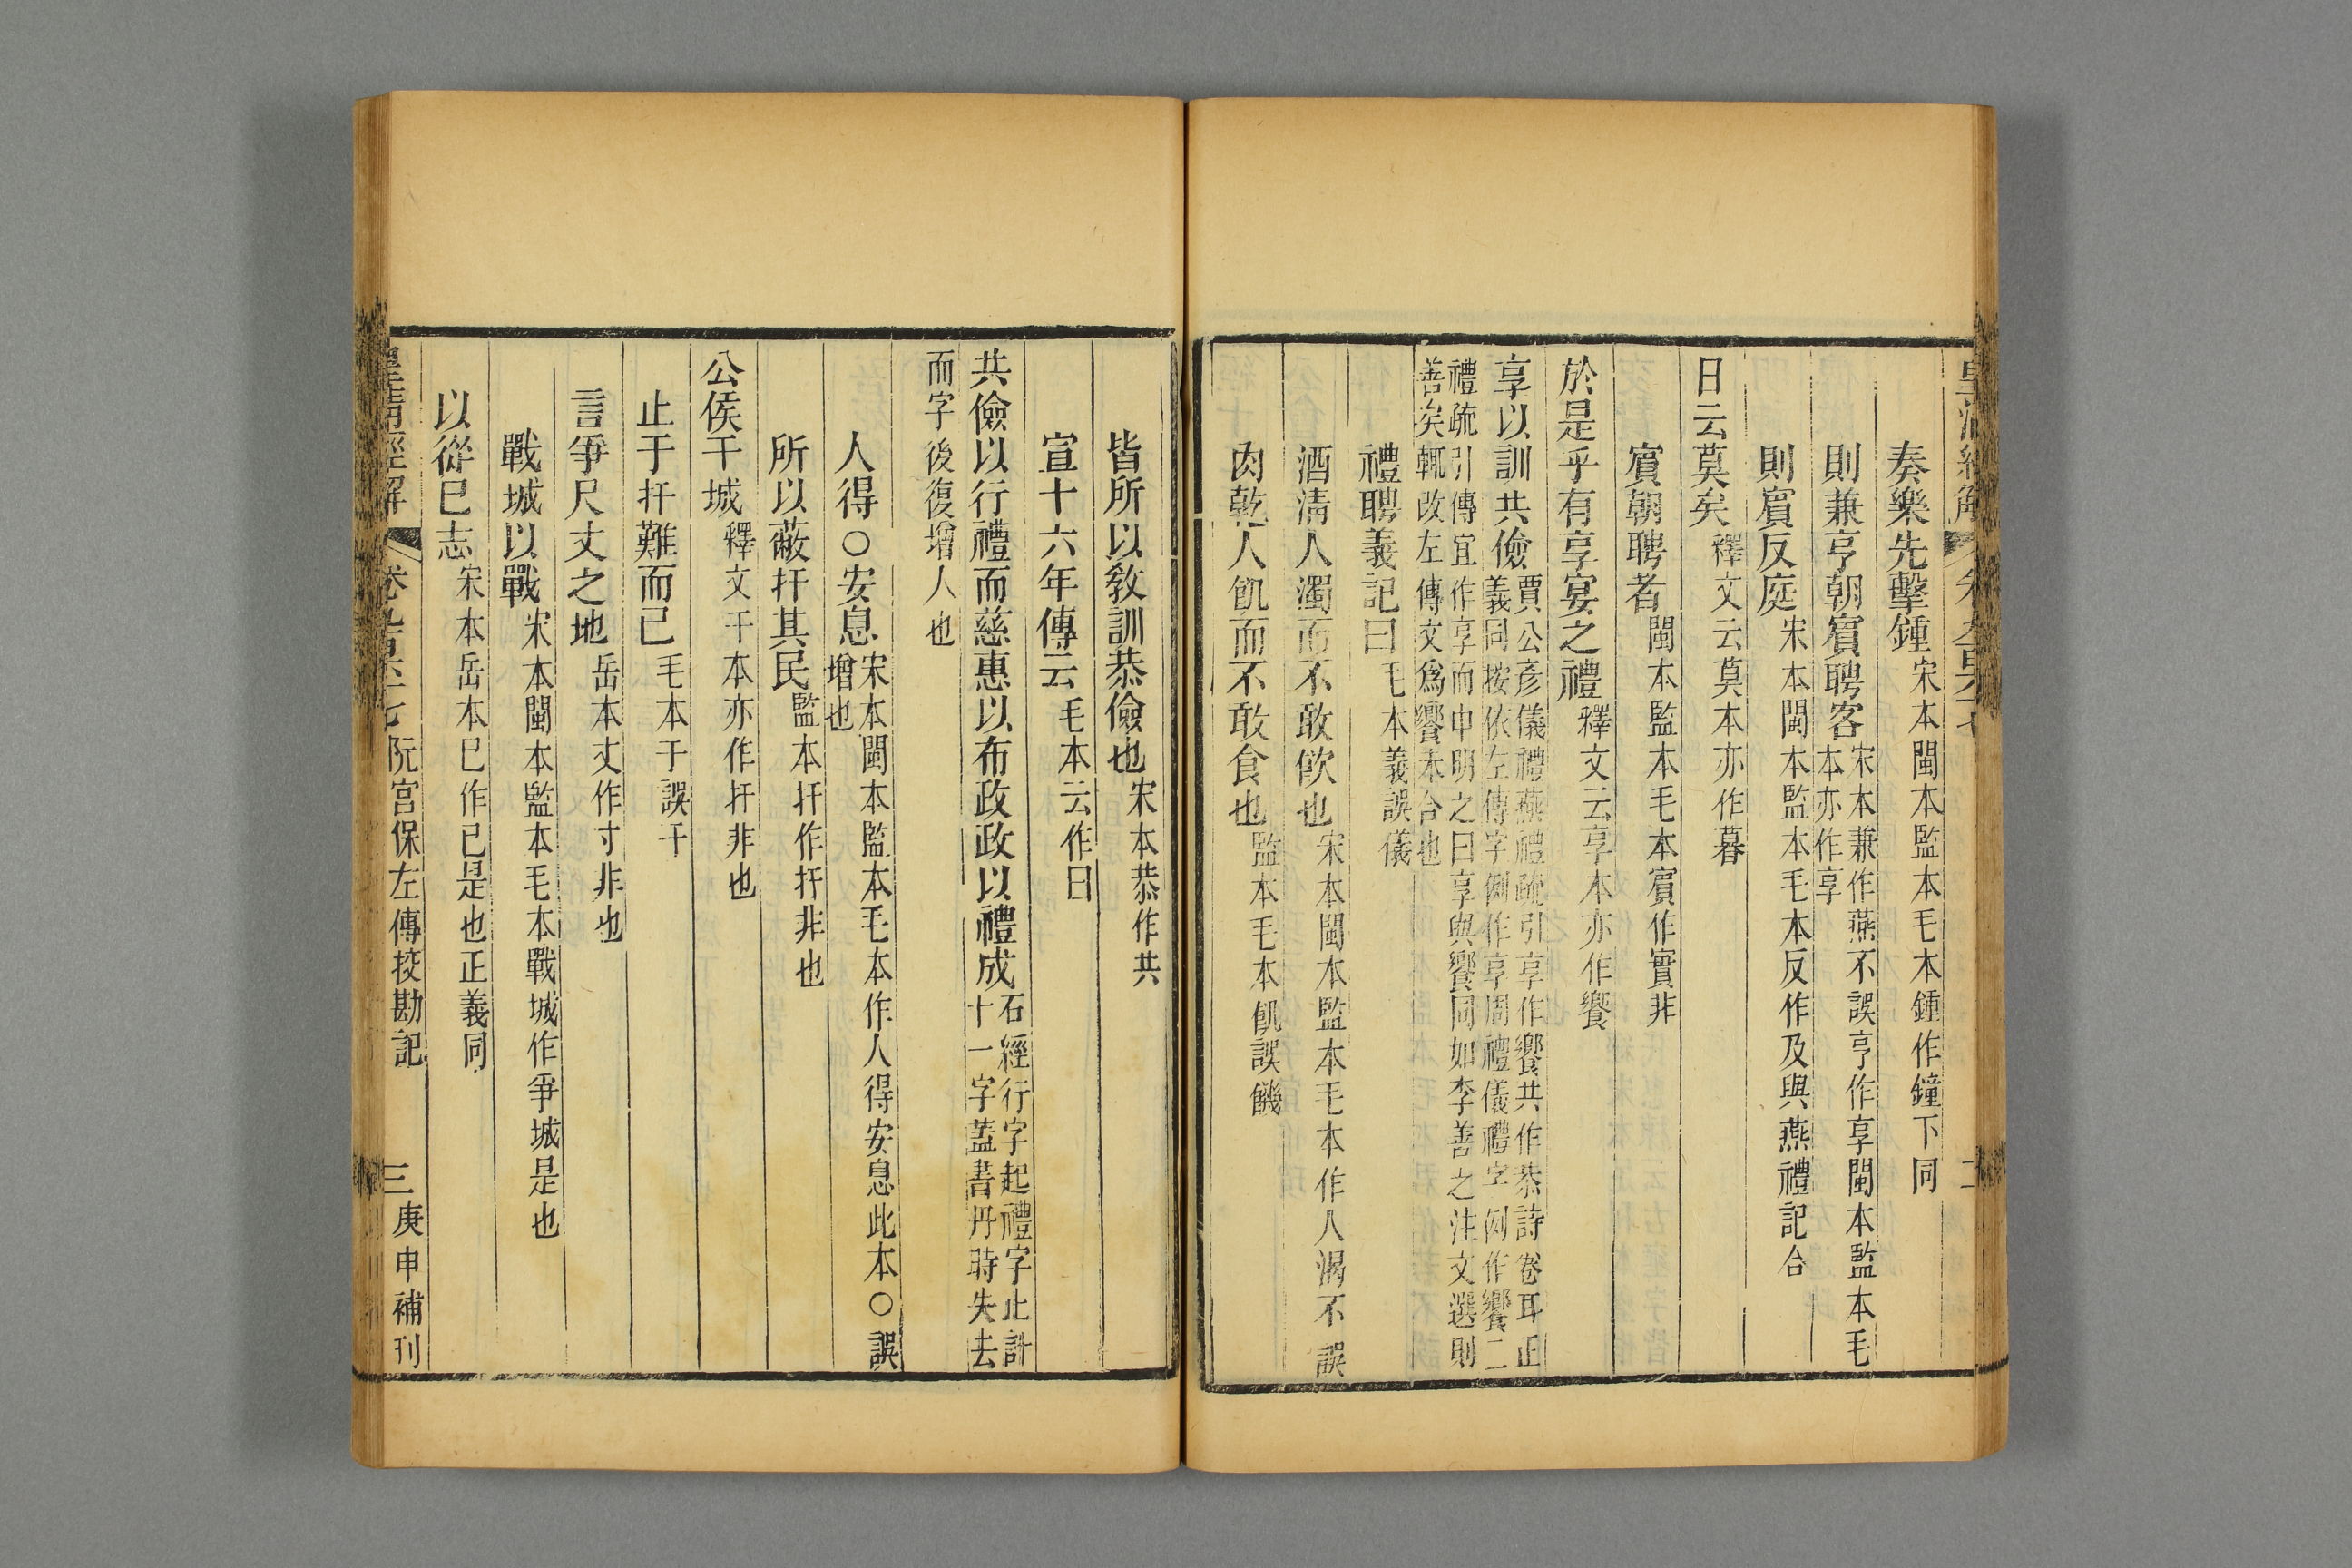 奏樂先擊鍾宋本閩本監本毛本鍾作鐘下同
則兼亨朝賓聘客宋本兼作燕不誤亨作享閩本監本毛本亦作享
則賓反庭宋本閩本監本毛本反作及與燕禮記合
日云莫矣釋文云莫本亦作暮
賓朝聘者閩本監本毛本賓作實非
於是乎有享宴之禮釋文云享本亦作饗
享以訓共儉賈公彥儀禮燕禮疏引享作饗共作恭詩卷耳正義同按依左傳字例作享周禮儀禮字例作饗二
禮疏引傳宜作享而申明之曰享與饗同如李善之注文選則善矣輒改左傳文爲饗未合也
禮聘義記曰毛本義誤儀
酒淸人濁而不敢飮也宋本閩本監本毛本作人渴不誤
肉乾人飢而不敢食也監本毛本飢誤饑
皆所以敎訓恭儉也宋本恭作共
宣十六年傳云毛本云作曰
共儉以行禮而慈惠以布政政以禮成石經行字起禮字止計十一字蓋書丹時失去
而字後復增人也
人得○安息宋本閩本監本毛本作人得安息此本○誤增也
所以蔽扞其民監本扞作扜非也
公侯干城釋文干本亦作扞非也
止于扞難而已毛本于誤干
言爭尺丈之地岳本丈作寸非也
戰城以戰宋本閩本監本毛本戰城作爭城是也
以從巳志宋本岳本巳作已是也正義同
皇淸經解 卷九百六十七 阮宮保左傳挍勘記 三 庚申補刊